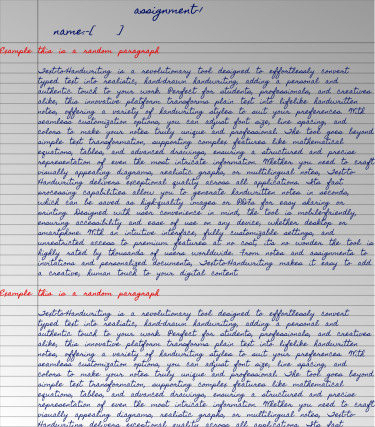 assignment-1
name:-[ ]
Example: this is a random paragraph
Text-to-Handwriting is a revolutionary tool designed to effortlessly convert
typed text into realistic, hand-drawn handwriting, adding a personal and
authentic touch to your work. Perfect for students, professionals, and creatives
alike, this innovative platform transforms plain text into lifelike handwritten
notes, offering a variety of handwriting styles to suit your preferences. With
seamless customization options, you can adjust font size, line spacing, and
colors to make your notes truly unique and professional. The tool goes beyond
simple text transformation, supporting complex features like mathematical
equations, tables, and advanced drawings, ensuring a structured and precise
representation of even the most intricate information. Whether you need to craft
visually appealing diagrams, realistic graphs, or multilingual notes, Text-to-
Handwriting delivers exceptional quality across all applications. Its fast
processing capabilities allow you to generate handwritten notes in seconds,
which can be saved as high-quality images or PDFs for easy sharing or
printing. Designed with user convenience in mind, the tool is mobile-friendly,
ensuring accessibility and ease of use on any device, whether desktop or
smartphone. With an intuitive interface, fully customizable settings, and
unrestricted access to premium features at no cost, it's no wonder the tool is
highly rated by thousands of users worldwide. From notes and assignments to
invitations and personalized documents, Text-to-Handwriting makes it easy to add
a creative, human touch to your digital content.
Example: this is a random paragraph
Text-to-Handwriting is a revolutionary tool designed to effortlessly convert
typed text into realistic, hand-drawn handwriting, adding a personal and
authentic touch to your work. Perfect for students, professionals, and creatives
alike, this innovative platform transforms plain text into lifelike handwritten
notes, offering a variety of handwriting styles to suit your preferences. With
seamless customization options, you can adjust font size, line spacing, and
colors to make your notes truly unique and professional. The tool goes beyond
simple text transformation, supporting complex features like mathematical
equations, tables, and advanced drawings, ensuring a structured and precise
representation of even the most intricate information. Whether you need to craft
visually appealing diagrams, realistic graphs, or multilingual notes, Text-to-
Handwriting delivers exceptional quality across all applications. Its fast